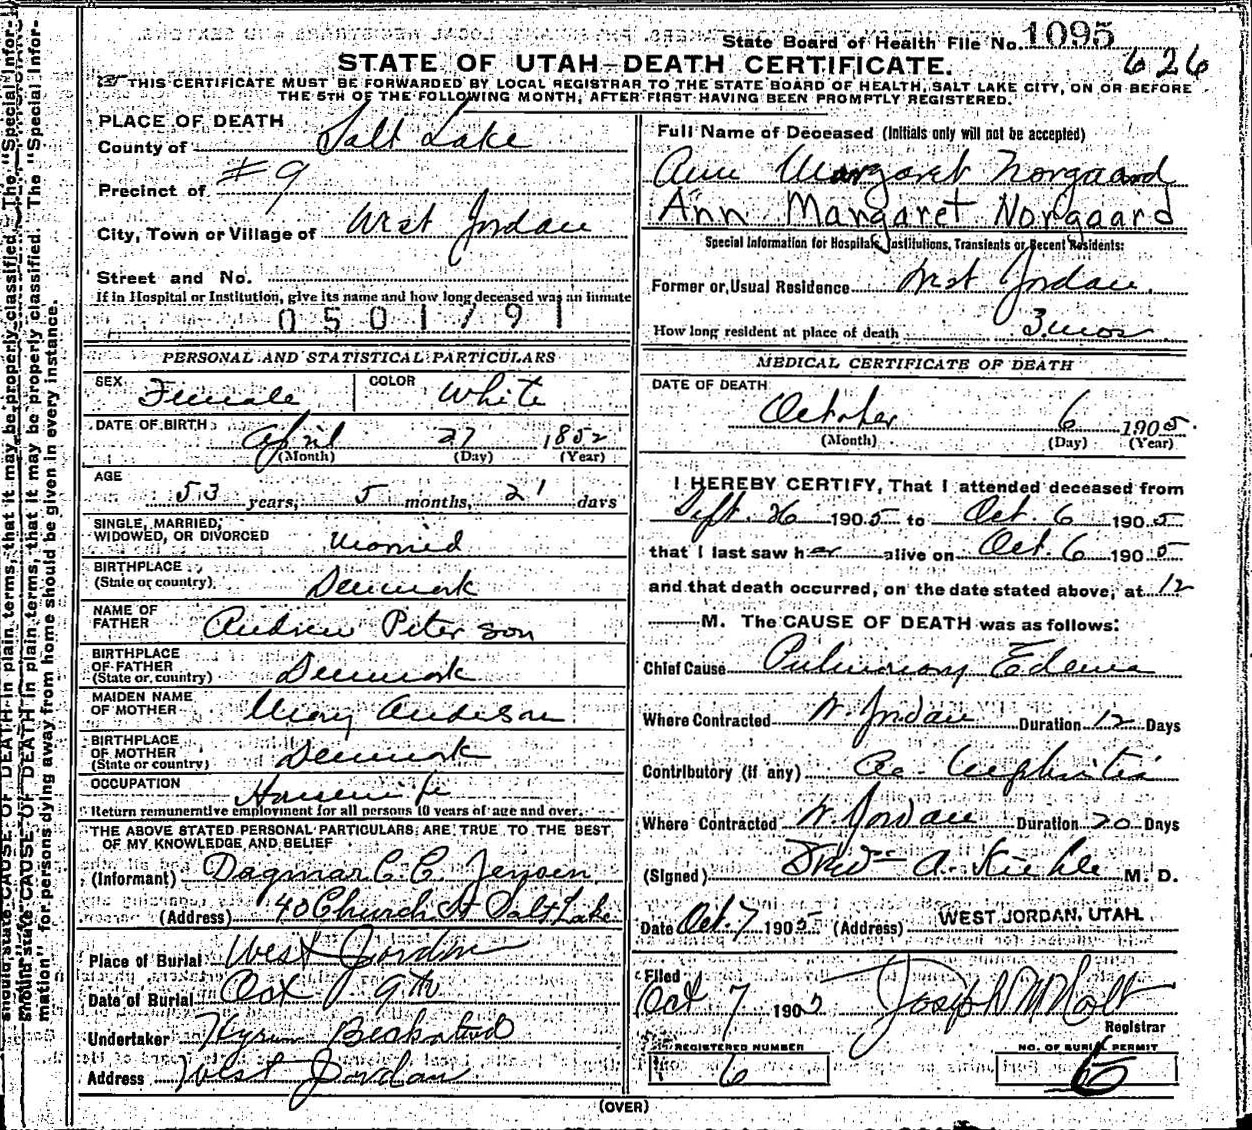 State Board of Health File No. 1095
626
STATE OF UTAH—DEATH CERTIFICATE.
THIS CERTIFICATE MUST BE FORWARDED BY LOCAL REGISTRAR TO THE STATE BOARD OF HEALTH, SALT LAKE CITY, ON OR BEFORE
THE 5TH OF THE FOLLOWING MONTH, AFTER FIRST HAVING BEEN PROMPTLY REGISTERED.
PLACE OF DEATH
County of Salt Lake
Precinct of #9
City, Town or Village of West Jordan
Street and No.
If in Hospital or Institution, give its name and how long deceased was an inmate
0501791
PERSONAL AND STATISTICAL PARTICULARS
SEX Female COLOR White
DATE OF BIRTH April 27 1852
(Month) (Day) (Year)
AGE
53 years, 5 months, 21 days
SINGLE, MARRIED,
WIDOWED, OR DIVORCED Married
BIRTHPLACE
(State or country) Denmark
NAME OF
FATHER Andrew Peterson
BIRTHPLACE
OF FATHER
(State or country) Denmark
MAIDEN NAME
OF MOTHER Mary Anderson
BIRTHPLACE
OF MOTHER
(State or country) Denmark
OCCUPATION Housewife
Return remunerative employment for all persons 10 years of age and over.
THE ABOVE STATED PERSONAL PARTICULARS ARE TRUE TO THE BEST
OF MY KNOWLEDGE AND BELIEF
(Informant) Dagmar C. C. Jensen
(Address) 40 Church St Salt Lake
Place of Burial West Jordan
Date of Burial Oct 9th
Undertaker Hyrum Beckstead
Address West Jordan
Full Name of Deceased (Initials only will not be accepted)
Ann Margaret Norgaard
Ann Margaret Norgaard
Special Information for Hospitals, Institutions, Transients or Recent Residents:
Former or Usual Residence West Jordan.
How long resident at place of death 3 mos
MEDICAL CERTIFICATE OF DEATH
DATE OF DEATH
October 6 1905
(Month) (Day) (Year)
I HEREBY CERTIFY, That I attended deceased from
Sept. 26 1905 to Oct. 6 1905
that I last saw her alive on Oct. 6 1905
and that death occurred, on the date stated above, at 12
M. The CAUSE OF DEATH was as follows:
Chief Cause Pulmonary Edema
Where Contracted W. Jordan Duration 12 Days
Contributory (if any) Ac. Nephritis
Where Contracted W. Jordan Duration 20 Days
(Signed) A. Kiehle M. D.
Date Oct. 7 1905 (Address) WEST JORDAN, UTAH.
Filed
Oct 7 1905 Joseph M Holt
Registrar
REGISTERED NUMBER
6
NO. OF BURIAL PERMIT
6
(OVER)
should state CAUSE OF DEATH in plain terms, that it may be properly classified. The "Special Infor-
should state CAUSE OF DEATH in plain terms, that it may be properly classified. The "Special Infor-
mation" for persons dying away from home should be given in every instance.